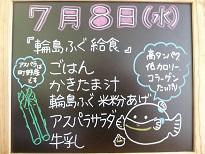 7月8日(水)
『輪島ふぐ給食』
ごはん
かきたま汁
輪島ふぐ米粉あげ
アスパラサラダ
牛乳
アスパラは
町野産
です
高タンパク
低カロリー
コラーゲン
たっぷり